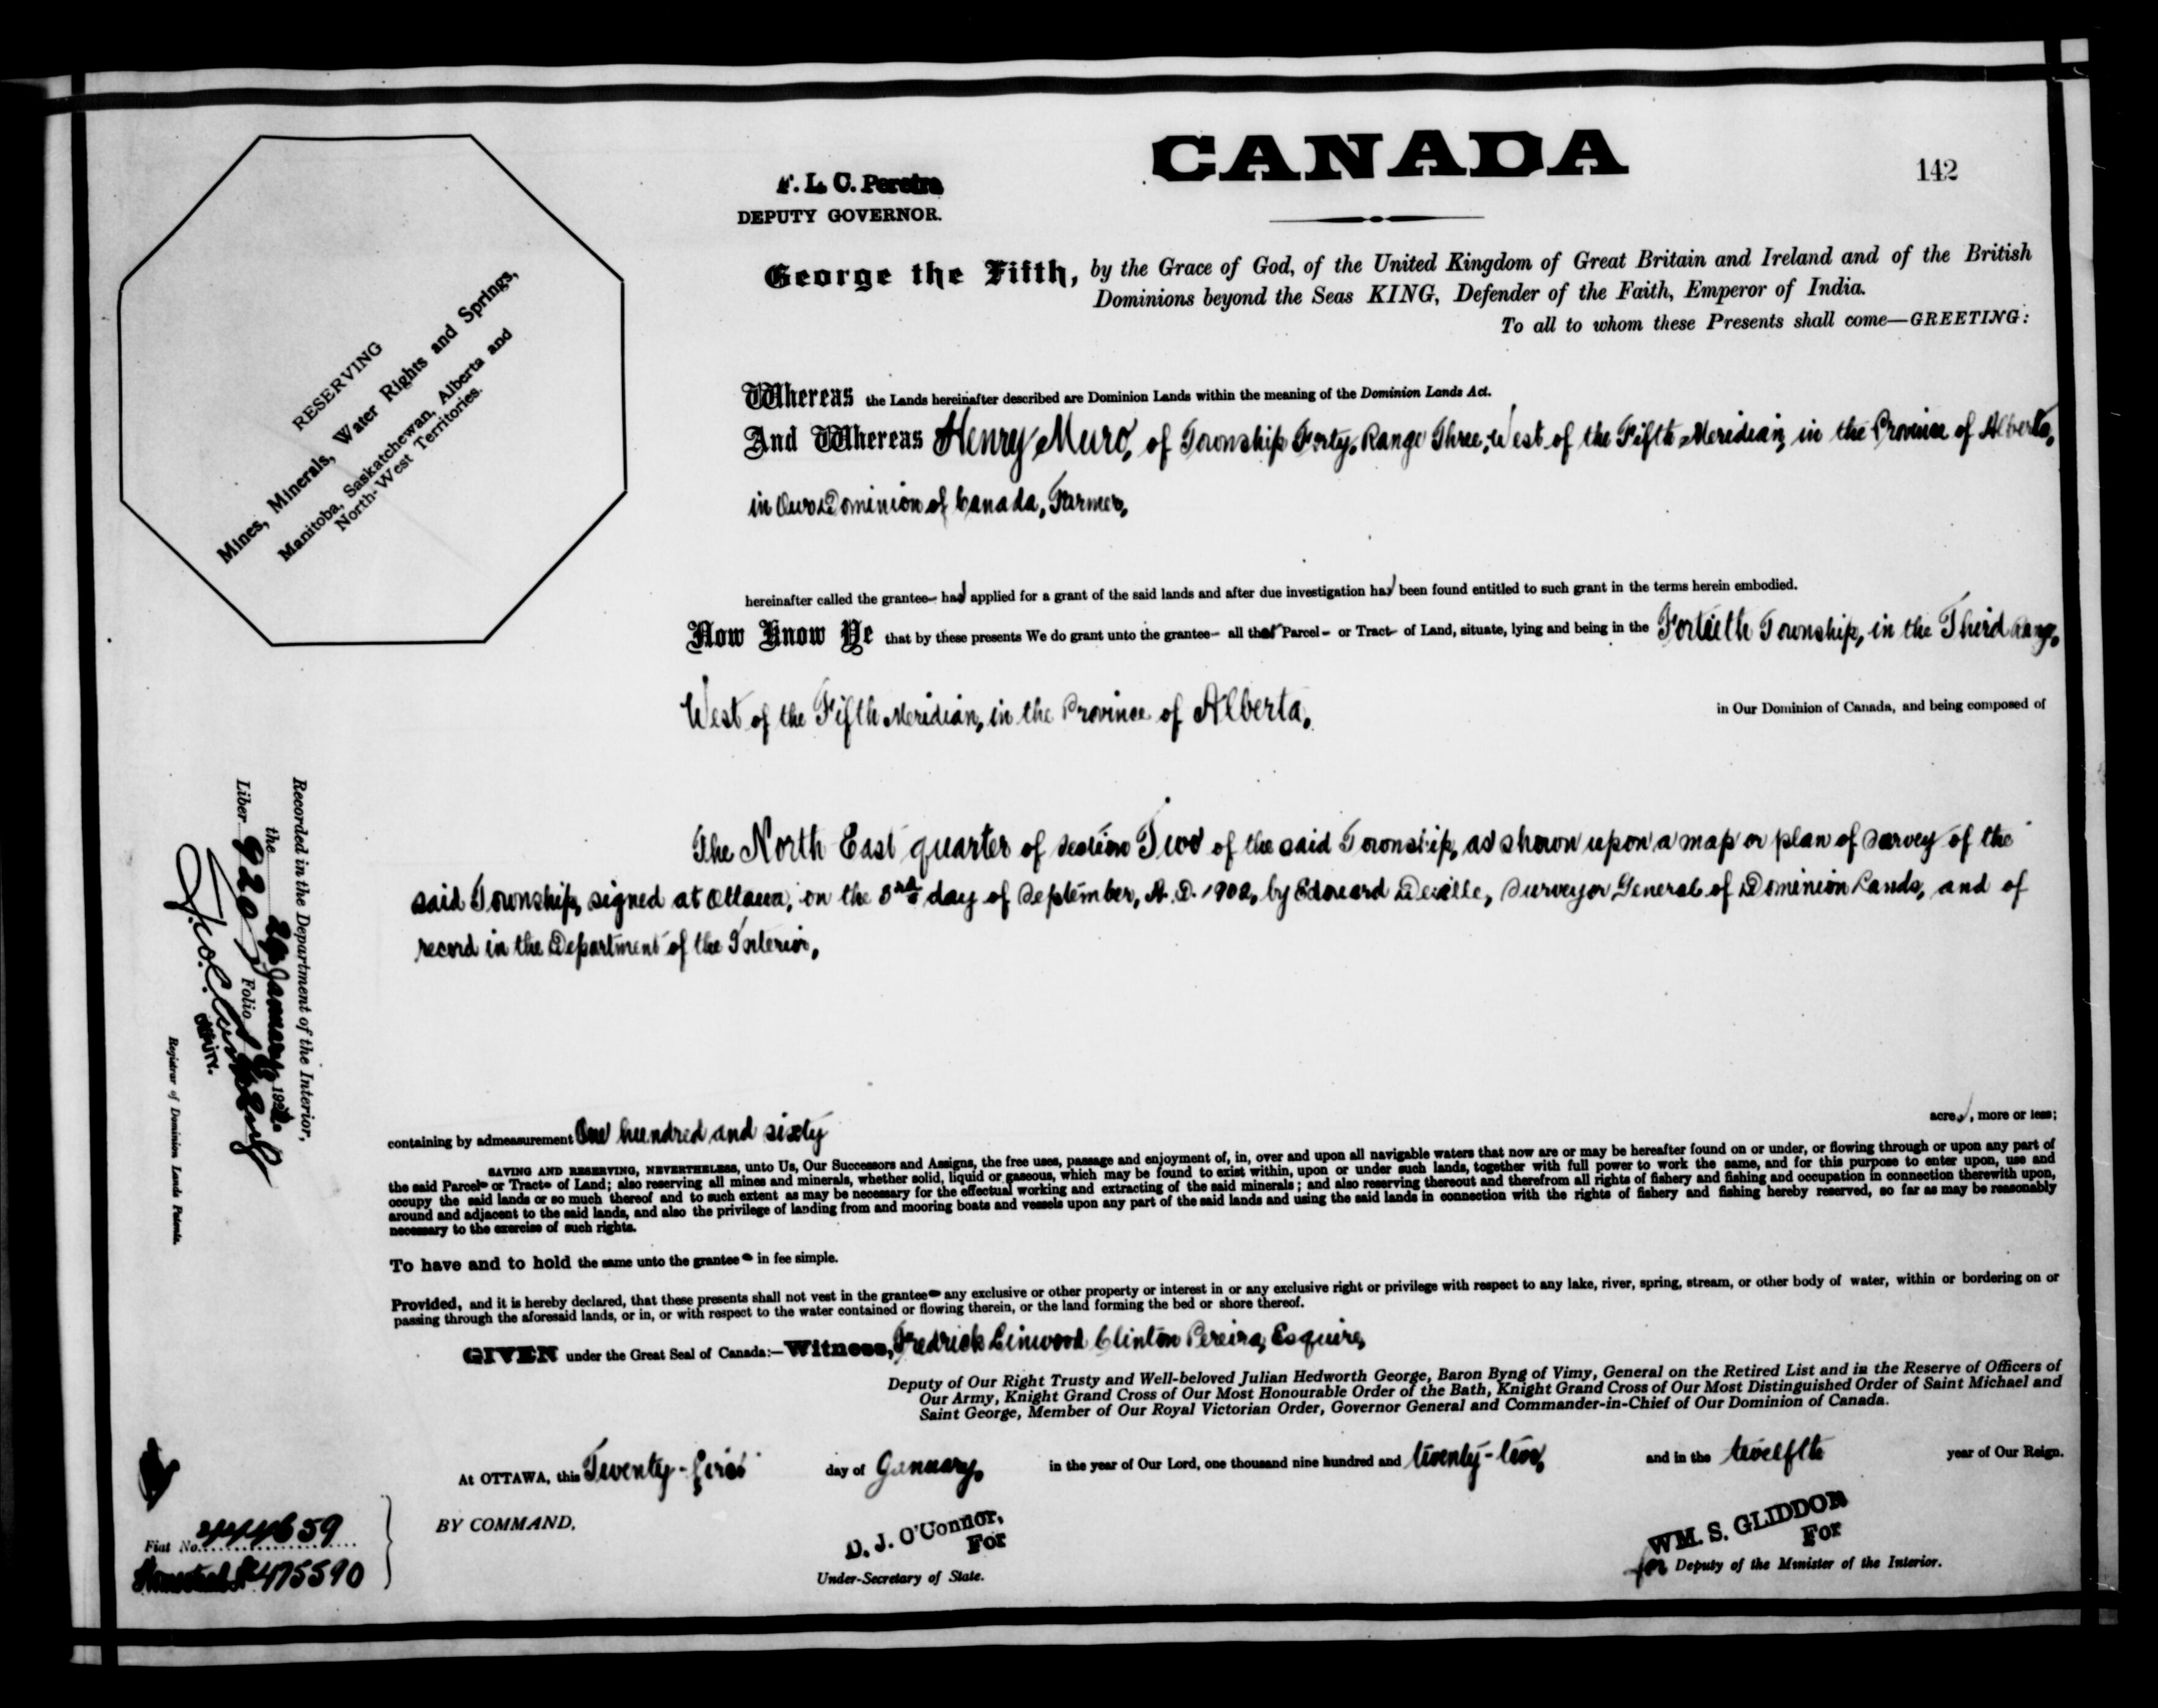 CANADA
142
F. L. C. Pereira
DEPUTY GOVERNOR.
George the Fifth, by the Grace of God, of the United Kingdom of Great Britain and Ireland and of the British
Dominions beyond the Seas KING, Defender of the Faith, Emperor of India.
To all to whom these Presents shall come—GREETING:
RESERVING
Mines, Minerals, Water Rights and Springs,
Manitoba, Saskatchewan, Alberta and
North-West Territories.
Whereas the Lands hereinafter described are Dominion Lands within the meaning of the Dominion Lands Act.
And Whereas Henry Muro, of Township Forty, Range Three, West of the Fifth Meridian, in the Province of Alberta,
in Our Dominion of Canada, Farmer,
hereinafter called the grantee- has applied for a grant of the said lands and after due investigation has been found entitled to such grant in the terms herein embodied.
Now Know Ye that by these presents We do grant unto the grantee- all that Parcel- or Tract- of Land, situate, lying and being in the Fortieth Township, in the Third Range,
West of the Fifth Meridian, in the Province of Alberta, in Our Dominion of Canada, and being composed of
The North East quarter of section Two of the said Township, as shown upon a map or plan of survey of the
said Township, signed at Ottawa, on the 3rd day of September, A. D. 1902, by Edouard Deville, Surveyor General of Dominion Lands, and of
record in the Department of the Interior,
containing by admeasurement One hundred and sixty acres, more or less;
SAVING AND RESERVING, NEVERTHELESS, unto Us, Our Successors and Assigns, the free uses, passage and enjoyment of, in, over and upon all navigable waters that now are or may be hereafter found on or under, or flowing through or upon any part of
the said Parcel- or Tract- of Land; also reserving all mines and minerals, whether solid, liquid or gaseous, which may be found to exist within, upon or under such lands, together with full power to work the same, and for this purpose to enter upon, use and
occupy the said lands or so much thereof and to such extent as may be necessary for the effectual working and extracting of the said minerals; and also reserving thereout and therefrom all rights of fishery and fishing and occupation in connection therewith upon,
around and adjacent to the said lands, and also the privilege of landing from and mooring boats and vessels upon any part of the said lands and using the said lands in connection with the rights of fishery and fishing hereby reserved, so far as may be reasonably
necessary to the exercise of such rights.
To have and to hold the same unto the grantee- in fee simple.
Provided, and it is hereby declared, that these presents shall not vest in the grantee- any exclusive or other property or interest in or any exclusive right or privilege with respect to any lake, river, spring, stream, or other body of water, within or bordering on or
passing through the aforesaid lands, or in, or with respect to the water contained or flowing therein, or the land forming the bed or shore thereof.
GIVEN under the Great Seal of Canada:—Witness, Fredrick Linwood Clinton Pereira, Esquire,
Deputy of Our Right Trusty and Well-beloved Julian Hedworth George, Baron Byng of Vimy, General on the Retired List and in the Reserve of Officers of
Our Army, Knight Grand Cross of Our Most Honourable Order of the Bath, Knight Grand Cross of Our Most Distinguished Order of Saint Michael and
Saint George, Member of Our Royal Victorian Order, Governor General and Commander-in-Chief of Our Dominion of Canada.
At OTTAWA, this Twenty-first day of January, in the year of Our Lord, one thousand nine hundred and twenty-two, and in the twelfth year of Our Reign.
BY COMMAND,
D. J. O'Connor,
For
Under-Secretary of State.
WM. S. GLIDDON
For
for Deputy of the Minister of the Interior.
Recorded in the Department of the Interior,
the January 192
Liber 920 Folio
DEPUTY.
Registrar of Dominion Lands Patents.
Fiat No. 444659
Homestead 475590